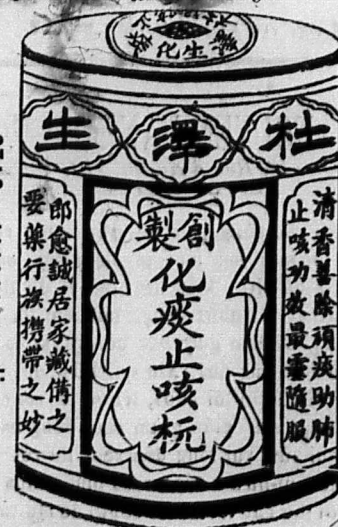 杜澤生
創製
化痰止咳杬
清香善除頑痰助肺
止咳功效最靈隨服
即愈誠居家藏備之
要藥行旅攜帶之妙